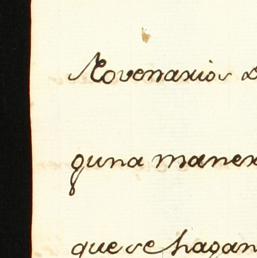 Novenarios
guna maner
que se hagan